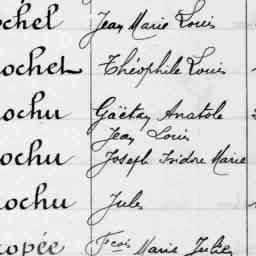 ochel Jean Marie Louis
ochet Théophile Louis
ochu Gaëtan Anatole
Jean Louis
ochu Joseph Isidore Marie
ochu Jules
opée Fcois Marie Julien